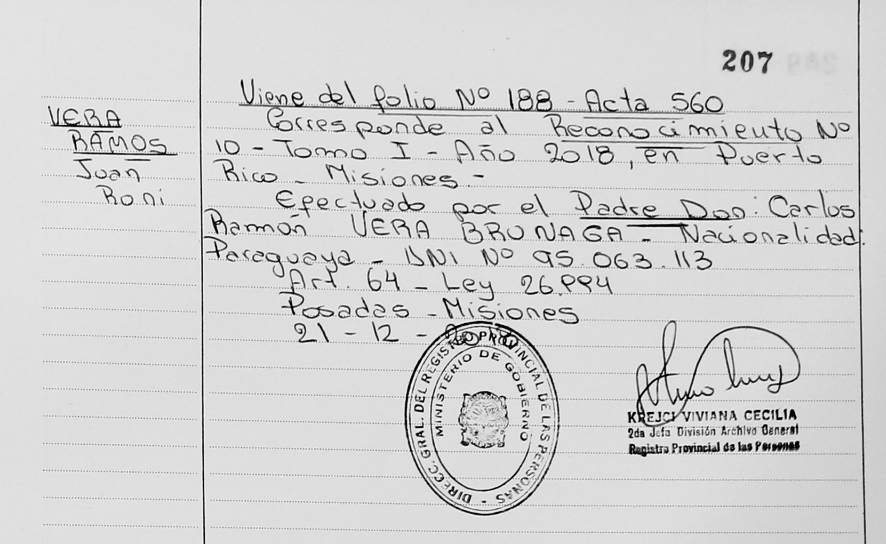 207
Viene del folio Nº 188 - Acta 560
VERA
RAMOS
Juan
Roni
Corresponde al Reconocimiento Nº
10 - Tomo I - Año 2018, en Puerto
Rico - Misiones -
Efectuado por el Padre Don: Carlos
Ramón VERA BRUNAGA - Nacionalidad:
Paraguaya - DNI Nº 95.063.113
Art. 64 - Ley 26.994
Posadas - Misiones
21 - 12 -
DIRECC. GRAL. DEL REGISTRO PROVINCIAL DE LAS PERSONAS -
MINISTERIO DE GOBIERNO
KREJCI VIVIANA CECILIA
2da Jefa División Archivo General
Registro Provincial de las Personas